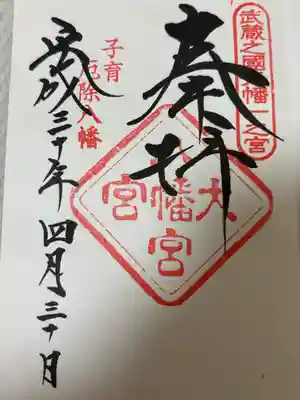 武蔵之國八幡一之宮
奉拝
大八幡宮宮
子育
厄除八幡
平成三十年四月三十日